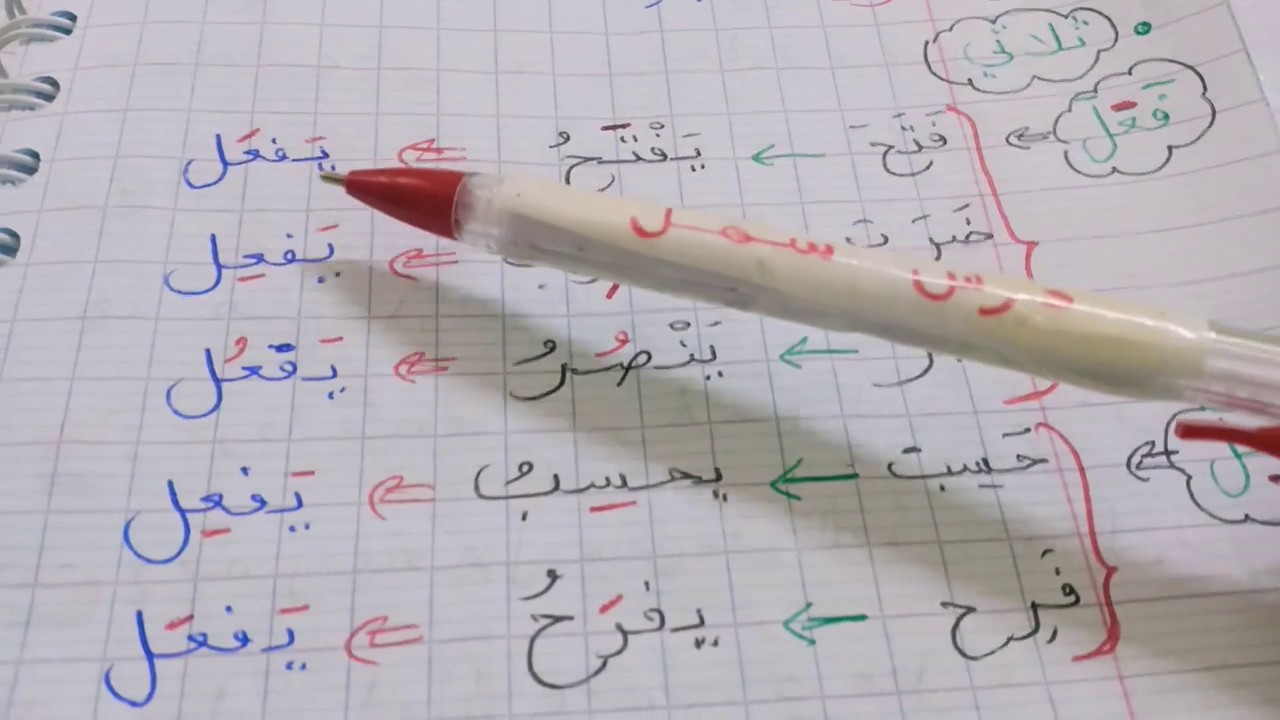 ثلاثي
فَعَل
فَتَحَ ← يَفْتَحُ ⇐ يَفعَل
ضَرَبَ ⇐ يَفعِل
ر ← يَنْصُرُ ⇐ يَفعُل
حَسِبَ ← يحسِبُ ⇐ يَفعِل
فَرِح ← يفرَحُ ⇐ يَفعَل
درس سهل